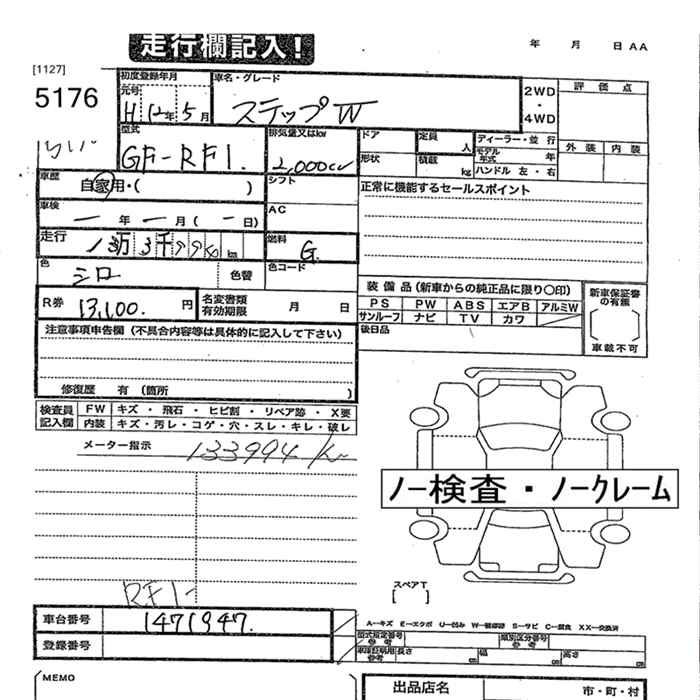 走行欄記入!
年 月 日 AA
[1127]
5176
初度登録年月
元号
H 12年 5月
車名・グレード
ステップW
2WD
・
4WD
評価点
外装 内装
型式
GF-RF1.
排気量又はkw
2,000cc
ドア
形状
定員 人
積載 kg
ディーラー・並行
モデル年式 年
ハンドル 左・右
車歴
自家用・( )
シフト
AC
正常に機能するセールスポイント
車検
一 年 一 月 ( 一 日)
走行
13万 3千 9 9 4 km
燃料
G.
色
シロ
色替
色コード
装備品(新車からの純正品に限り○印)
PS PW ABS エアB アルミW
サンルーフ ナビ TV カワ
後日品
新車保証書の有無
車載不可
R券
13,100.円
名変書類有効期限
月 日
注意事項申告欄(不具合内容等は具体的に記入して下さい)
修復歴 有(箇所 )
検査員記入欄
FW キズ・飛石・ヒビ割・リペア跡・X要
内装 キズ・汚レ・コゲ・穴・スレ・キレ・破レ
メーター指示
133994 km
ノー検査・ノークレーム
スペアT
[ ]
RF1-
車台番号
1471947.
登録番号
A-キズ E-エクボ U-凹み W-補修跡 S-サビ C-腐食 XX-交換済
型式指定番号
参考
類別区分番号
車庫証明用
参考
長さ cm
幅 cm
高さ cm
MEMO
出品店名
市・町・村